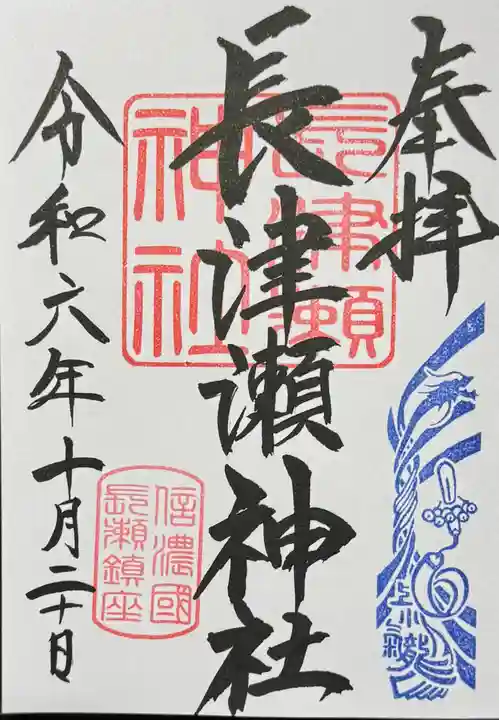 奉拝
長津瀬神社
長津瀬
神社
信濃國
長瀬鎮座
令和六年十月二十日